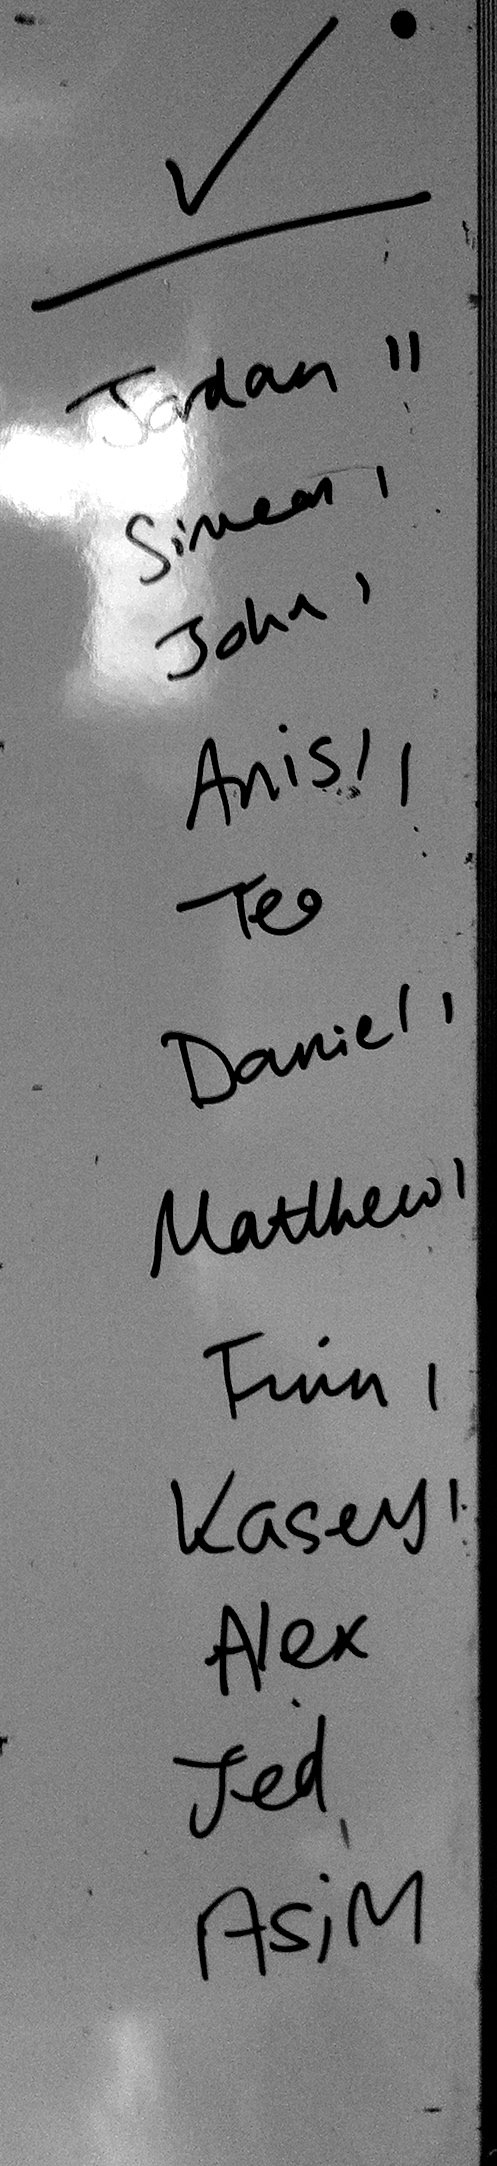 ✓
Jordan II
Simeon I
John I
Anis I I
Teo
Daniel I
Matthew I
Finin I
Kasey I
Alex
Jed
Asim